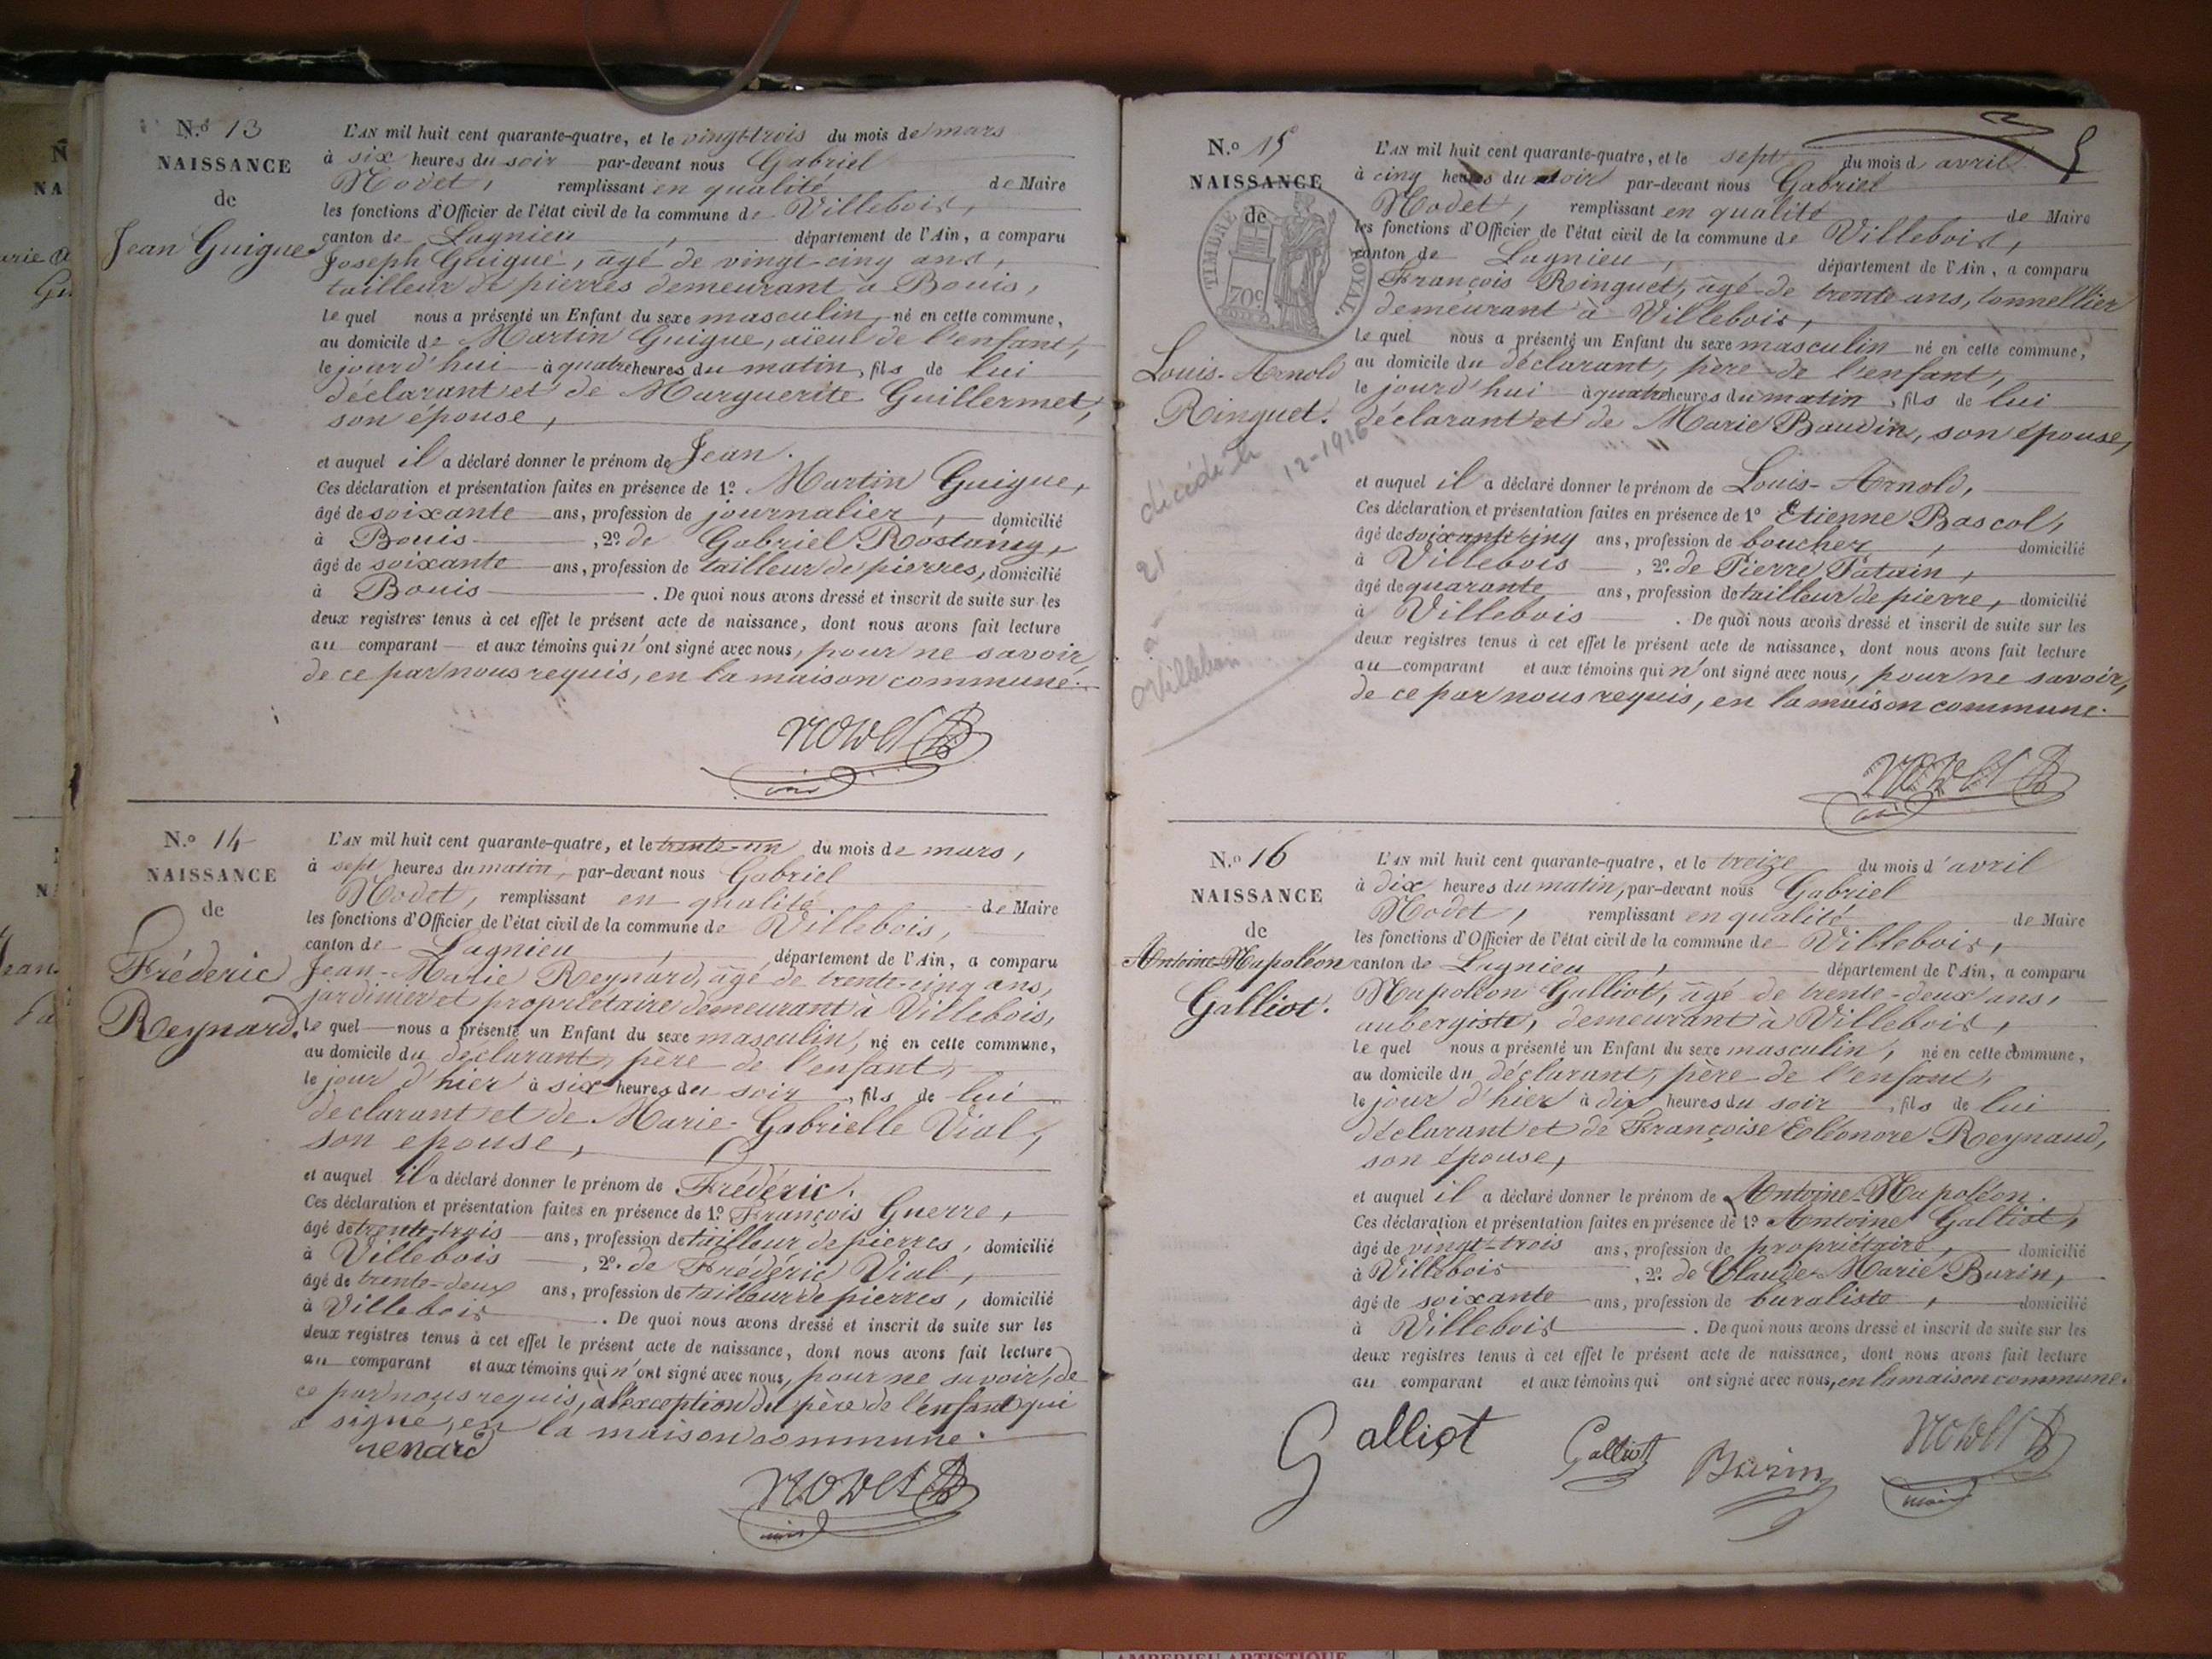 N.º 13
NAISSANCE
de
Jean Guigue
L'AN mil huit cent quarante-quatre, et le vingt-trois du mois de mars
à six heures du soir par-devant nous Gabriel
Nodet, remplissant en qualité de Maire
les fonctions d'Officier de l'état civil de la commune de Villebois,
canton de Lagnieu, département de l'Ain, a comparu
Joseph Guigue, âgé de vingt-cinq ans,
tailleur de pierres demeurant à Bouis,
le quel nous a présenté un Enfant du sexe masculin, né en cette commune,
au domicile de Martin Guigue, aïeul de l'enfant,
le jourd'hui à quatre heures du matin, fils de lui
déclarant et de Marguerite Guillermet,
son épouse,
et auquel il a déclaré donner le prénom de Jean.
Ces déclaration et présentation faites en présence de 1º Martin Guigue,
âgé de soixante ans, profession de journalier, domicilié
à Bouis, 2º de Gabriel Rostaing,
âgé de soixante ans, profession de tailleur de pierres, domicilié
à Bouis. De quoi nous avons dressé et inscrit de suite sur les
deux registres tenus à cet effet le présent acte de naissance, dont nous avons fait lecture
au comparant et aux témoins qui n'ont signé avec nous, pour ne savoir,
de ce par nous requis, en la maison commune.
Nodet
N.º 14
NAISSANCE
de
Fréderic
Reynard.
L'AN mil huit cent quarante-quatre, et le trente-un du mois de mars,
à sept heures du matin, par-devant nous Gabriel
Nodet, remplissant en qualité de Maire
les fonctions d'Officier de l'état civil de la commune de Villebois,
canton de Lagnieu, département de l'Ain, a comparu
Jean-Marie Reynard, âgé de trente-cinq ans,
jardinier et propriétaire demeurant à Villebois,
le quel nous a présenté un Enfant du sexe masculin, né en cette commune,
au domicile du déclarant, père de l'enfant,
le jour d'hier à six heures du soir, fils de lui
déclarant et de Marie-Gabrielle Vial,
son épouse,
et auquel il a déclaré donner le prénom de Fréderic.
Ces déclaration et présentation faites en présence de 1º François Guerre,
âgé de trente-trois ans, profession de tailleur de pierres, domicilié
à Villebois, 2º de Fréderic Vial,
âgé de trente-deux ans, profession de tailleur de pierres, domicilié
à Villebois. De quoi nous avons dressé et inscrit de suite sur les
deux registres tenus à cet effet le présent acte de naissance, dont nous avons fait lecture
au comparant et aux témoins qui n'ont signé avec nous, pour ne savoir, de
ce par nous requis, à l'exception du père de l'enfant qui
a signé, en la maison commune.
renard
Nodet
N.º 15
NAISSANCE
de
TIMBRE ROYAL
Louis-Arnold
Ringuet.
décédé le
21
12-1916
à
Villebois
5
L'AN mil huit cent quarante-quatre, et le sept du mois d'avril
à cinq heures du soir par-devant nous Gabriel
Nodet, remplissant en qualité de Maire
les fonctions d'Officier de l'état civil de la commune de Villebois,
canton de Lagnieu, département de l'Ain, a comparu
François Ringuet, âgé de trente ans, tonnellier
demeurant à Villebois,
le quel nous a présenté un Enfant du sexe masculin né en cette commune,
au domicile du déclarant, père de l'enfant,
le jourd'hui à quatre heures du matin, fils de lui
déclarant et de Marie Baudin, son épouse,
et auquel il a déclaré donner le prénom de Louis-Arnold,
Ces déclaration et présentation faites en présence de 1º Etienne Bascol,
âgé de soixante-cinq ans, profession de boucher, domicilié
à Villebois, 2º de Pierre Patuin,
âgé de quarante ans, profession de tailleur de pierre, domicilié
à Villebois. De quoi nous avons dressé et inscrit de suite sur les
deux registres tenus à cet effet le présent acte de naissance, dont nous avons fait lecture
au comparant et aux témoins qui n'ont signé avec nous, pour ne savoir,
de ce par nous requis, en la maison commune.
Nodet
N.º 16
NAISSANCE
de
Antoine-Napoléon
Galliot.
L'AN mil huit cent quarante-quatre, et le treize du mois d'avril
à dix heures du matin, par-devant nous Gabriel
Nodet, remplissant en qualité de Maire
les fonctions d'Officier de l'état civil de la commune de Villebois,
canton de Lagnieu, département de l'Ain, a comparu
Napoléon Galliot, âgé de trente-deux ans,
aubergiste, demeurant à Villebois,
le quel nous a présenté un Enfant du sexe masculin, né en cette commune,
au domicile du déclarant, père de l'enfant,
le jour d'hier à dix heures du soir, fils de lui
déclarant et de Françoise Eléonore Reynaud,
son épouse,
et auquel il a déclaré donner le prénom de Antoine-Napoléon.
Ces déclaration et présentation faites en présence de 1º Antoine Galliot,
âgé de vingt-trois ans, profession de propriétaire, domicilié
à Villebois, 2º de Claude-Marie Burin,
âgé de soixante ans, profession de buraliste, domicilié
à Villebois. De quoi nous avons dressé et inscrit de suite sur les
deux registres tenus à cet effet le présent acte de naissance, dont nous avons fait lecture
au comparant et aux témoins qui ont signé avec nous, en la maison commune.
Galliot Galliot Burin Nodet
maire
AMBERIEU ARTISTIQUE